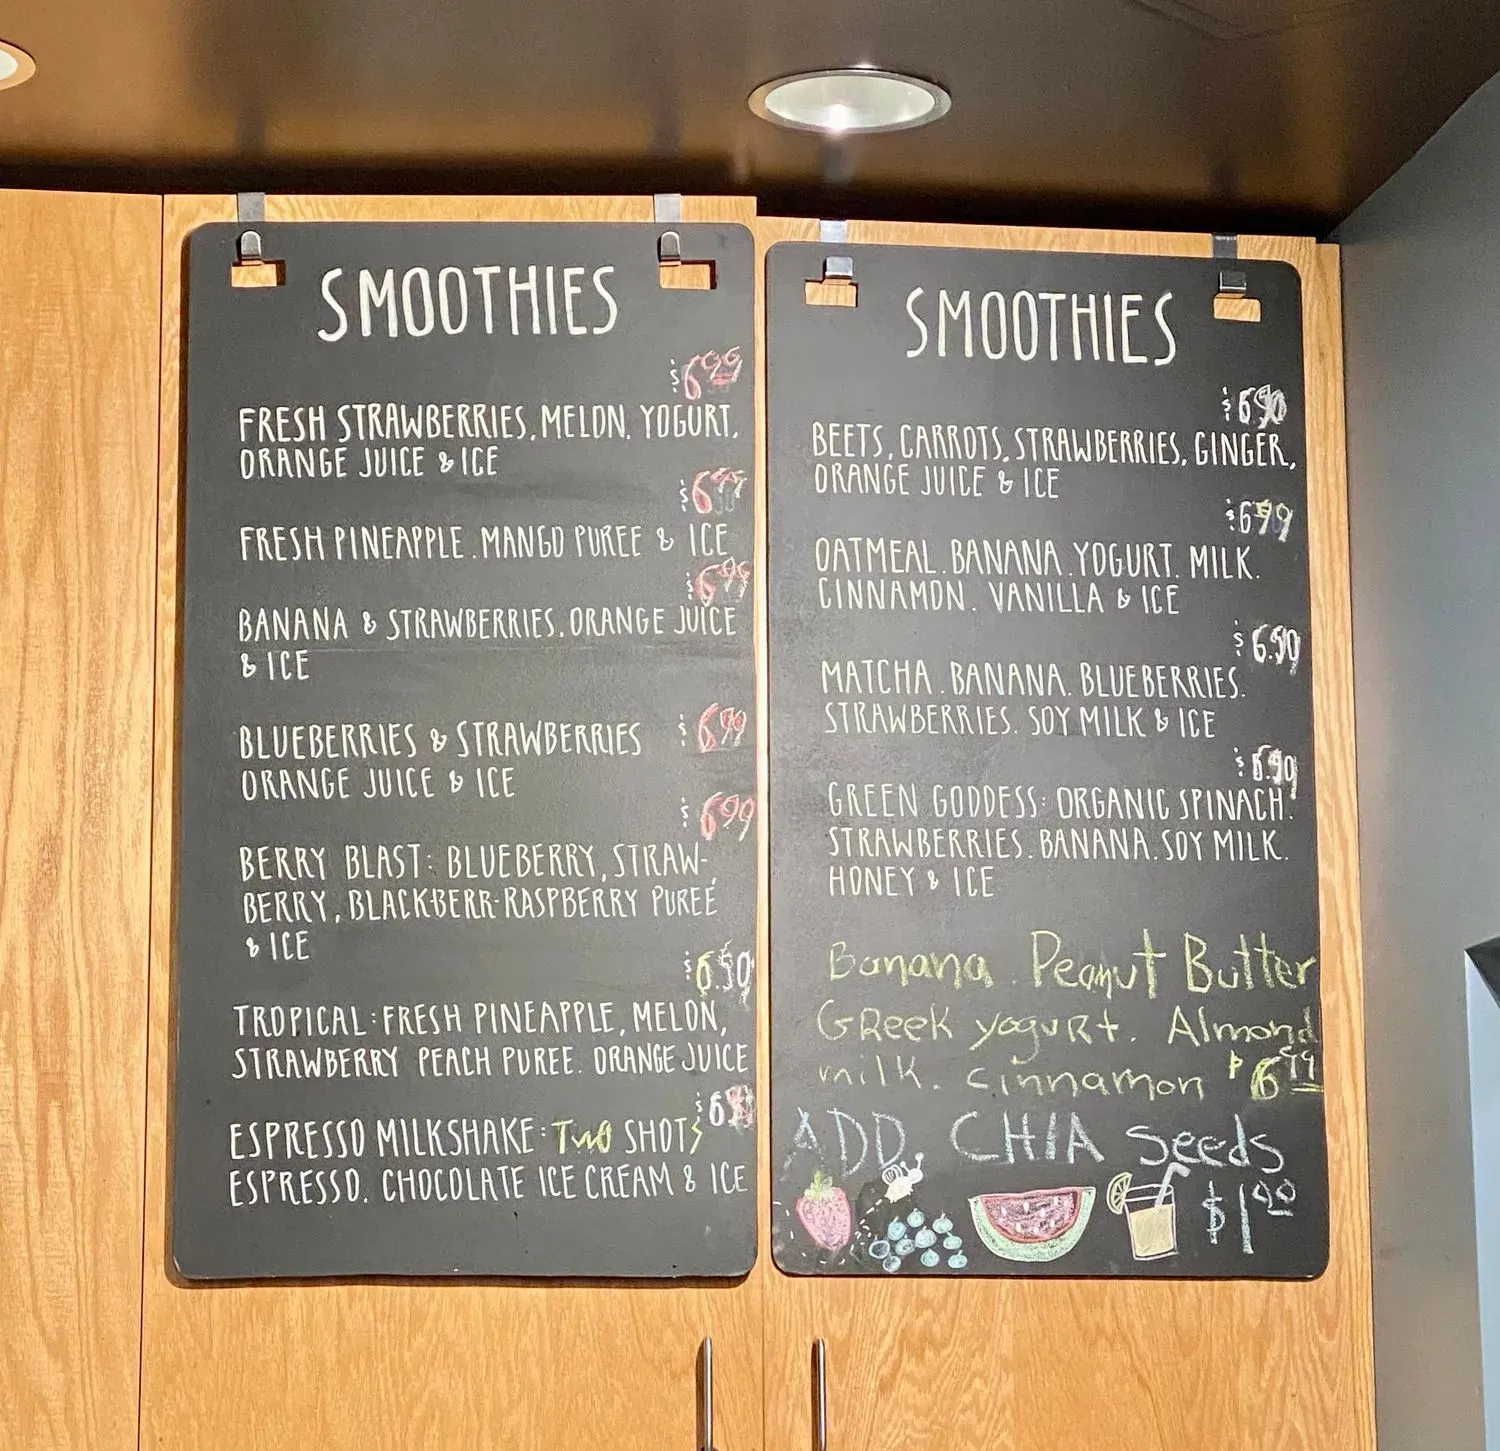 SMOOTHIES
$6.99
FRESH STRAWBERRIES, MELON, YOGURT,
ORANGE JUICE & ICE
$6.99
FRESH PINEAPPLE. MANGO PUREE & ICE
$6.99
BANANA & STRAWBERRIES. ORANGE JUICE
& ICE
BLUEBERRIES & STRAWBERRIES $6.99
ORANGE JUICE & ICE
$6.99
BERRY BLAST: BLUEBERRY, STRAW-
BERRY, BLACKBERR-RASPBERRY PUREE
& ICE
$6.50
TROPICAL: FRESH PINEAPPLE, MELON,
STRAWBERRY PEACH PUREE. ORANGE JUICE
ESPRESSO MILKSHAKE: TWO SHOTS
ESPRESSO. CHOCOLATE ICE CREAM & ICE
SMOOTHIES
BEETS, CARROTS, STRAWBERRIES, GINGER,
ORANGE JUICE & ICE
$6.99
OATMEAL. BANANA. YOGURT. MILK.
CINNAMON. VANILLA & ICE
MATCHA. BANANA. BLUEBERRIES.
STRAWBERRIES. SOY MILK & ICE
GREEN GODDESS: ORGANIC SPINACH.
STRAWBERRIES. BANANA. SOY MILK.
HONEY & ICE
Banana. Peanut Butter
Greek yogurt. Almond
milk. cinnamon $6.99
ADD CHIA Seeds
$1.00